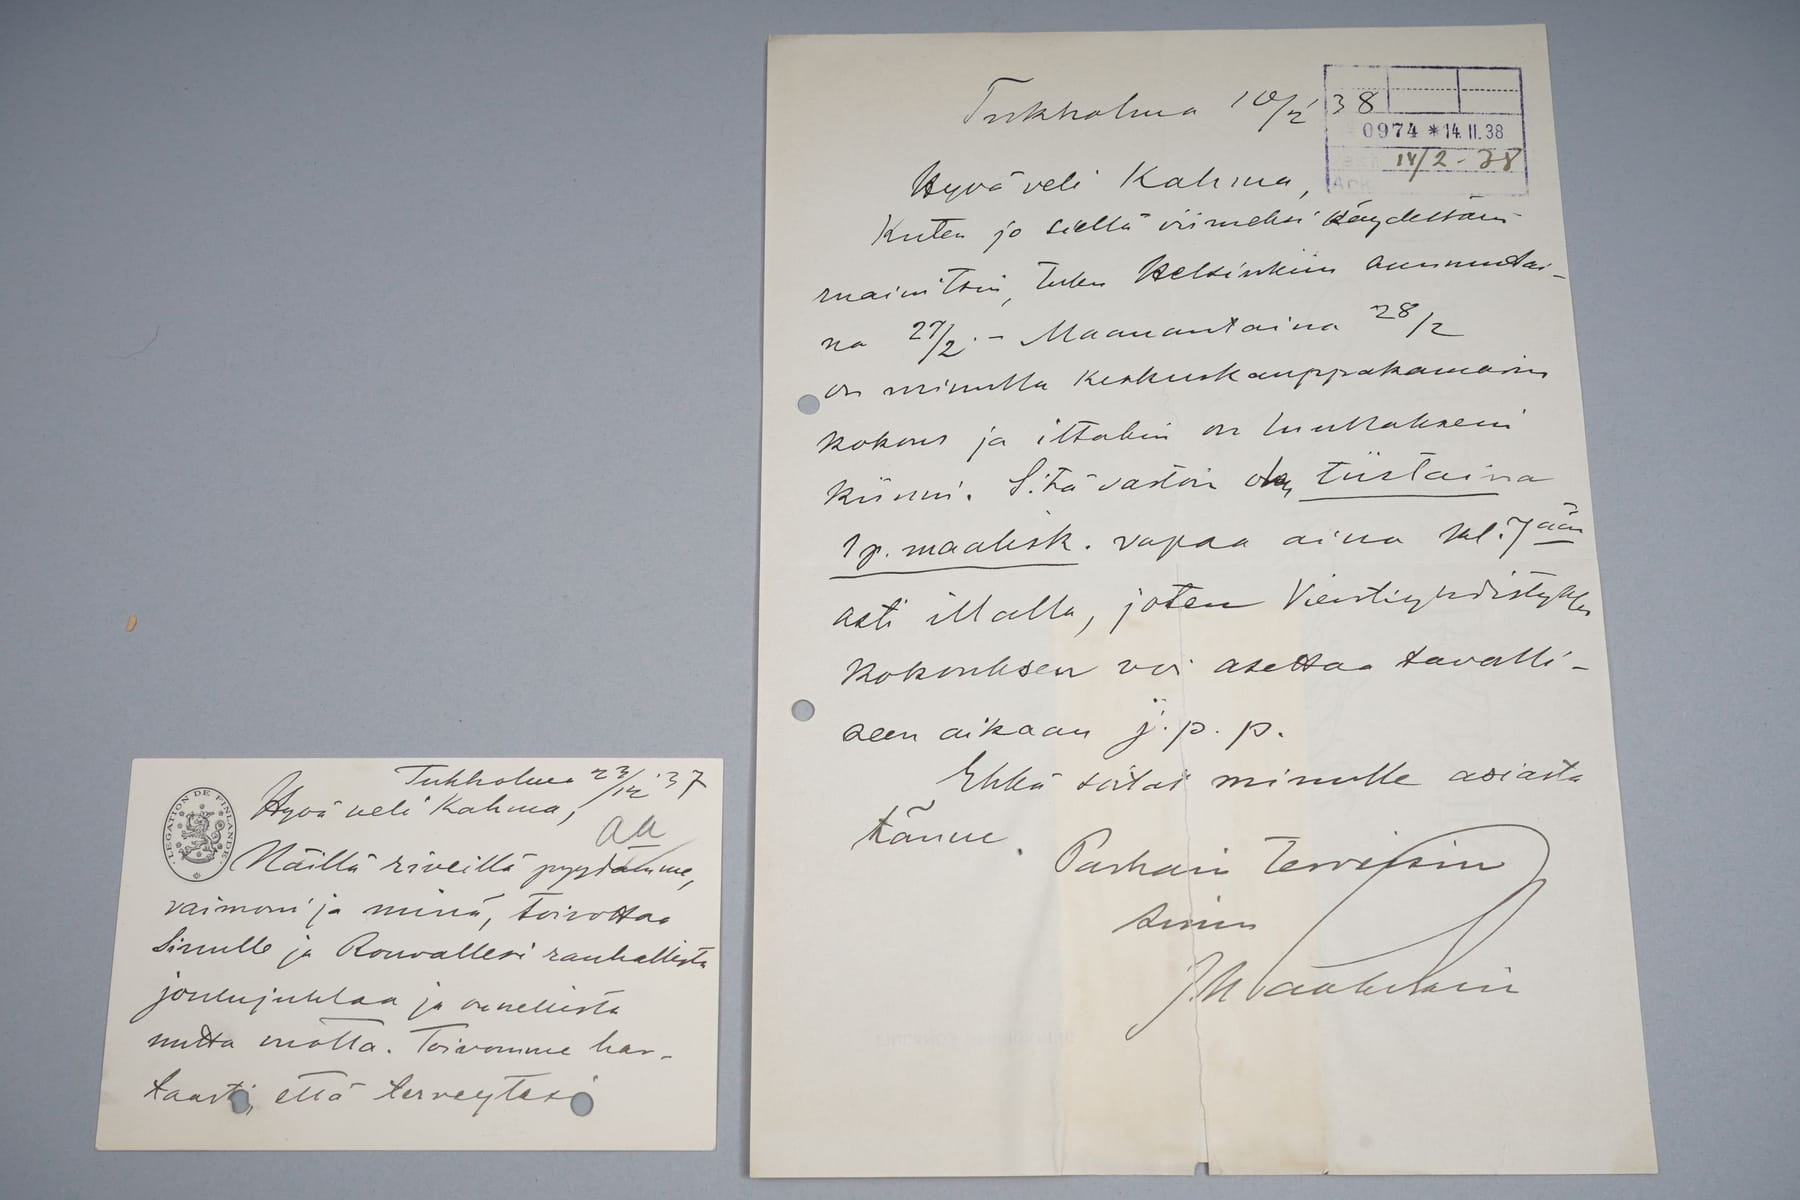 Tukholma 23/12 '37
LEGATION DE FINLANDE
Hyvä veli Kahma,
aa
Näillä riveillä pyydämme,
vaimoni ja minä, toivottaa
Sinulle ja Rouvallesi rauhallista
joulujuhlaa ja onnellista
uutta vuotta. Toivomme har-
taasti, että terveytesi
Tukholma 10/2 '38
0974 * 14.II.38
14/2 - 38
Hyvä veli Kahma,
Kuten jo siellä viimeksi käydessäni
mainitsin, tulen Helsinkiin sunnuntai-
na 27/2. - Maanantaina 28/2
on minulla Keskuskauppakamarin
kokous ja iltakin on luullakseni
kiinni. Sitävastoin olen tiistaina
1 p. maalisk. vapaa aina kl. 7ään
asti illalla, joten Vientiyhdistyksen
kokouksen voi asettaa tavalli-
seen aikaan j.p.p.
Ehkä soitat minulle asiasta
tänne. Parhain terveisin
Sinun